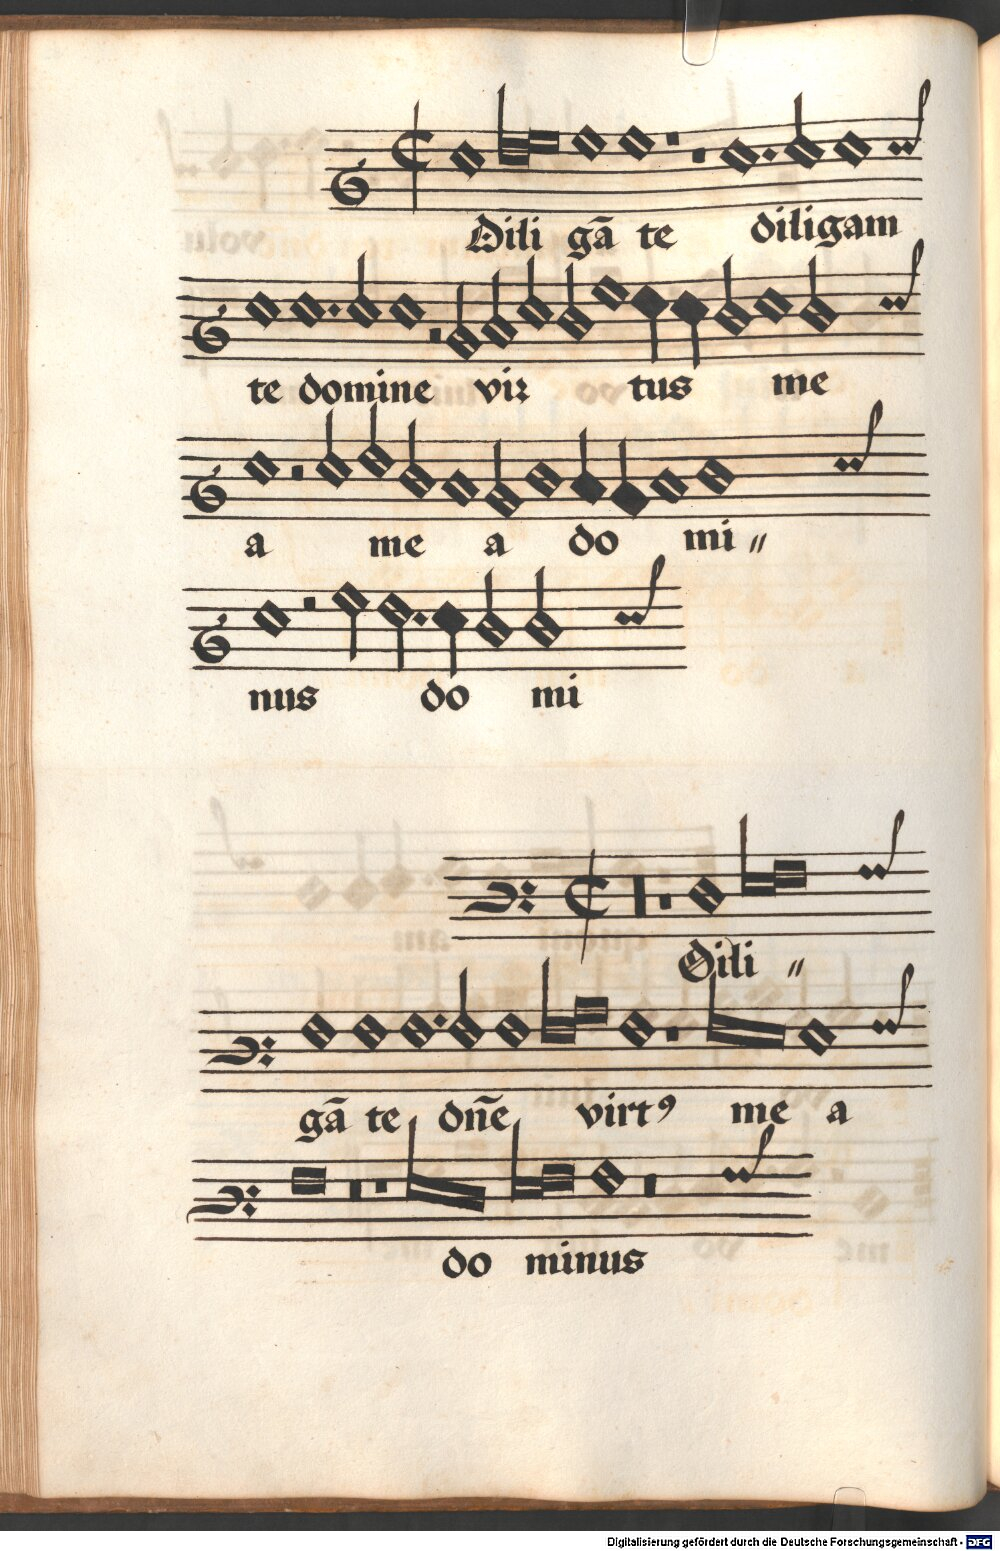 Dili gā te diligam
te domine vir tus me
a me a do mi〃
nus do mi
Dili 〃
gā te dn̄e virtꝰ me a
do minus
Digitalisierung gefördert durch die Deutsche Forschungsgemeinschaft - DFG